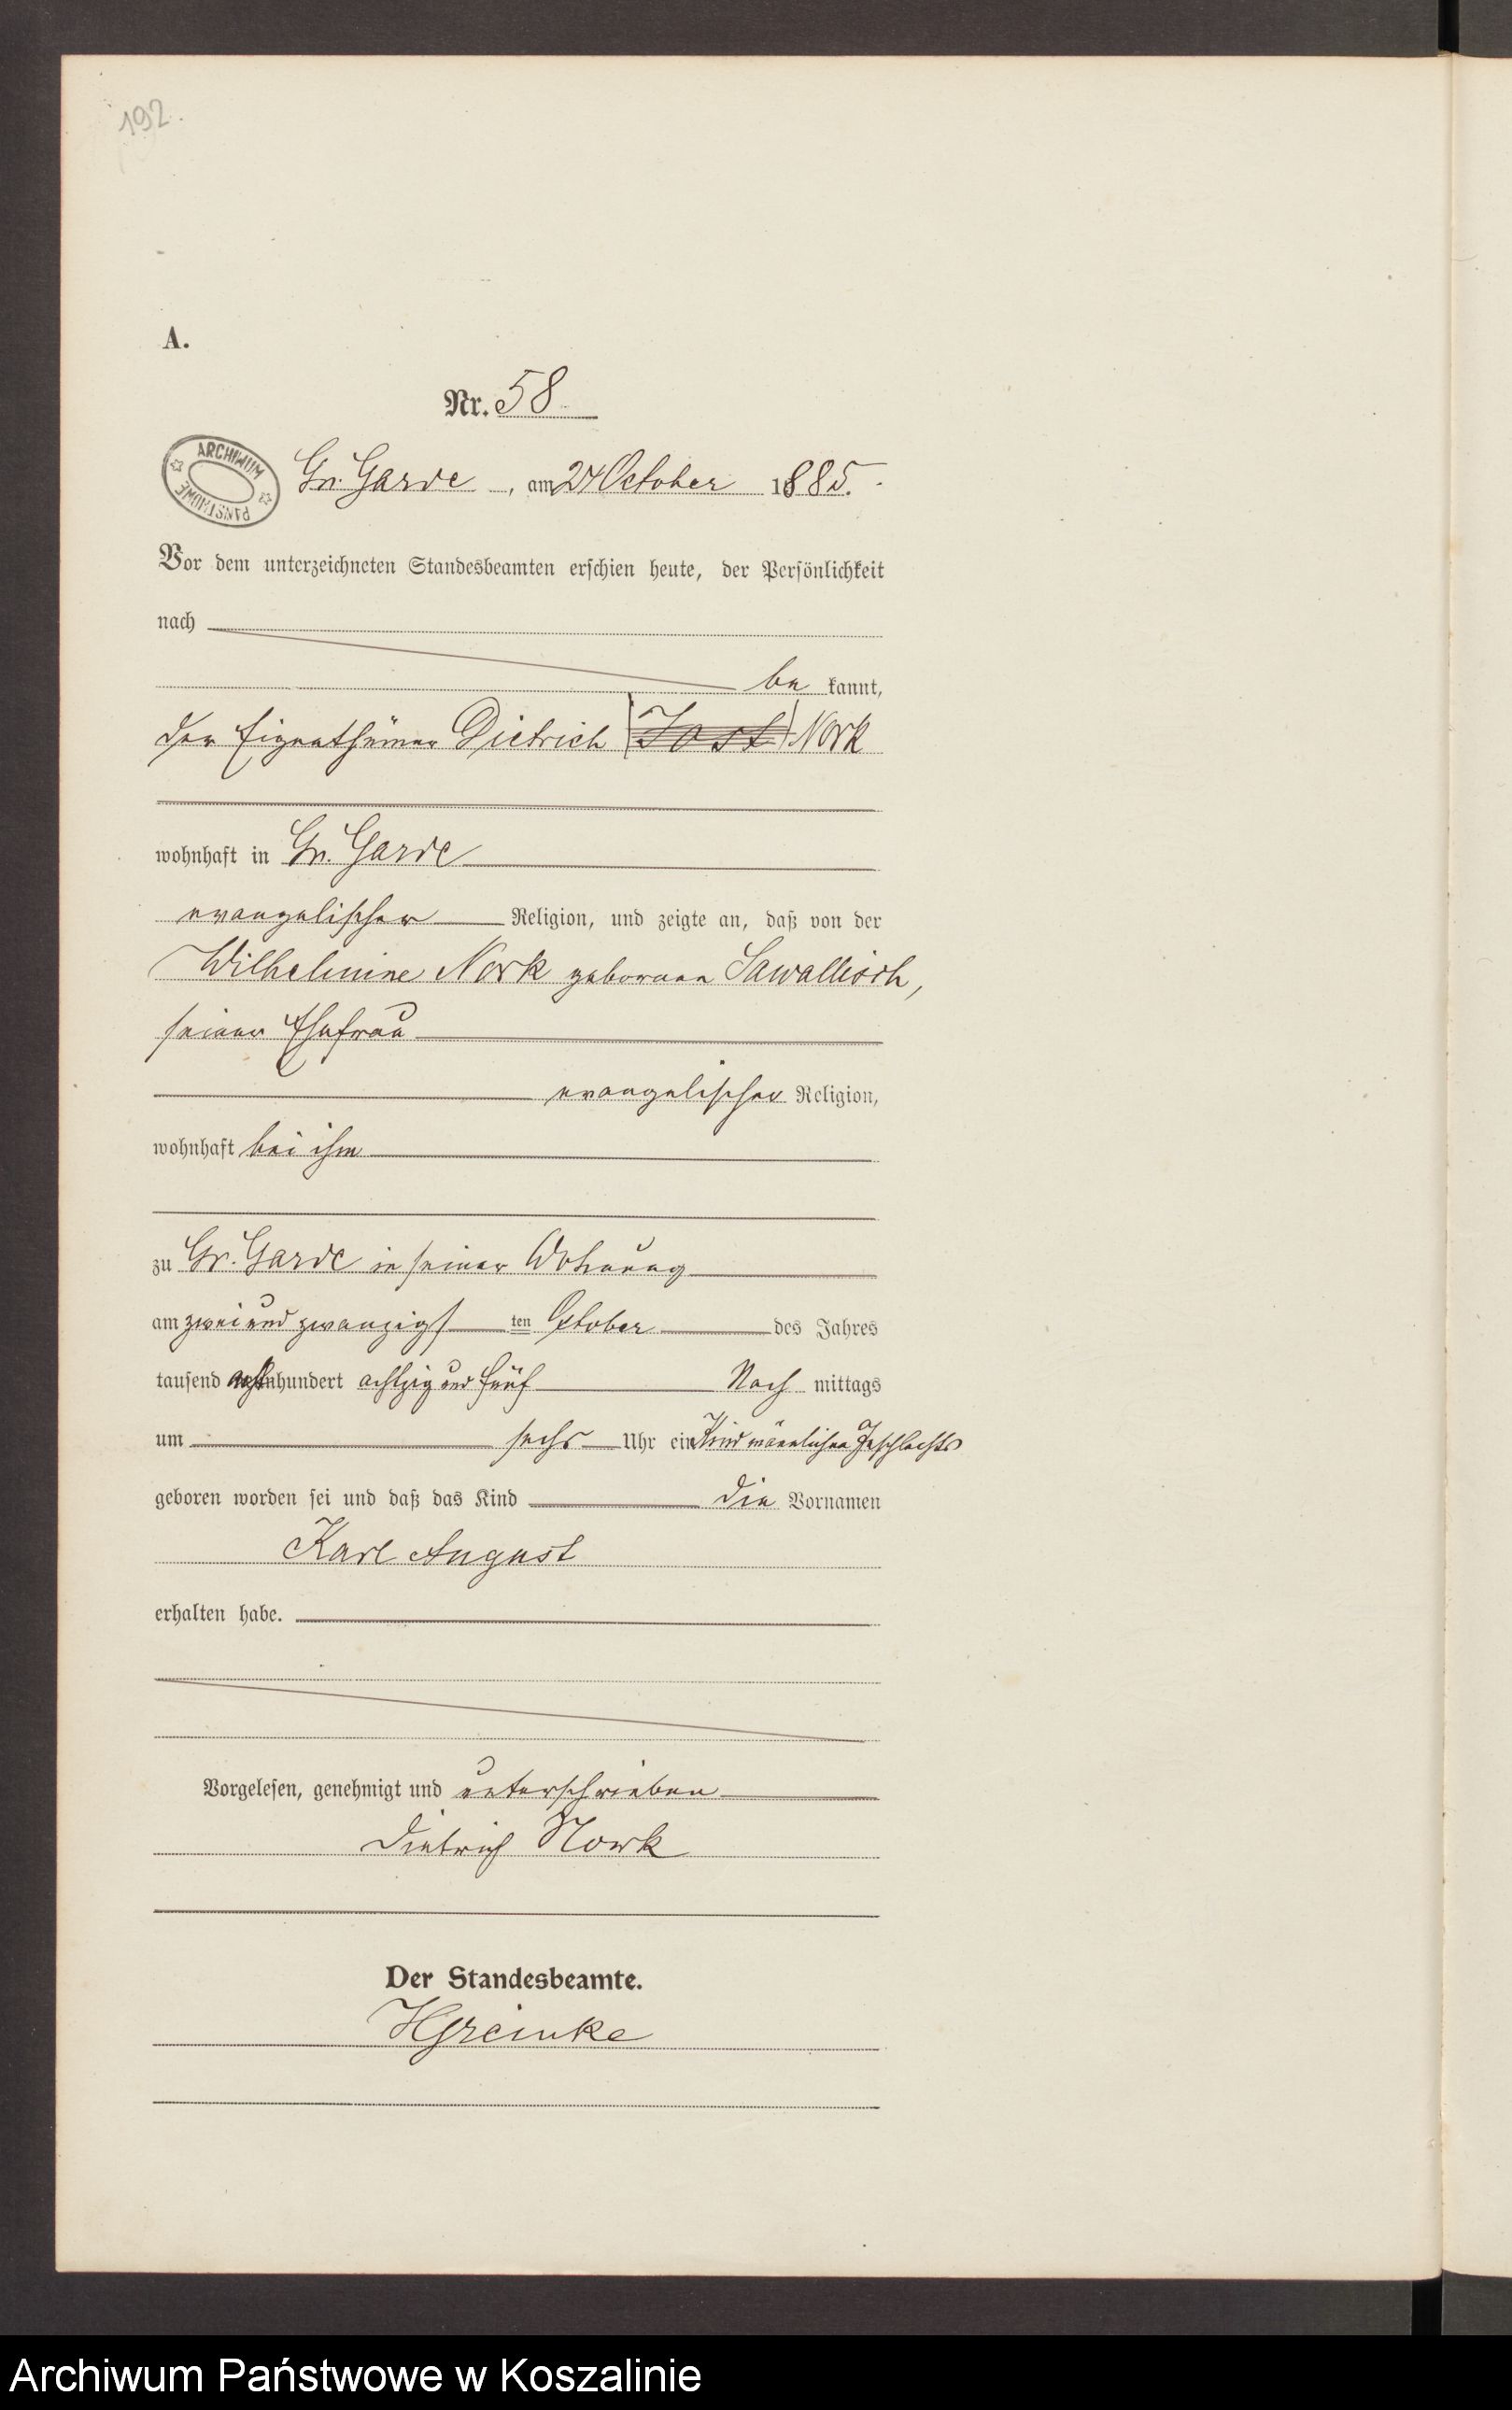 192.
A.
Nr. 58
ARCHIWUM PAŃSTWOWE
Gr. Garde, am 24 October 1885.
Vor dem unterzeichneten Standesbeamten erschien heute, der Persönlichkeit
nach
be kannt,
der Eigenthümer Dietrich (Jost) Nork
wohnhaft in Gr. Garde
evangelischer Religion, und zeigte an, daß von der
Wilhelmine Nork geborenen Sawallisch,
seiner Ehefrau
evangelischer Religion,
wohnhaft bei ihm
zu Gr. Garde in seiner Wohnung
am zwei und zwanzigs ten October des Jahres
tausend acht hundert achtzig und fünf Nach mittags
um sechs Uhr ein Kind männlichen Geschlechts
geboren worden sei und daß das Kind die Vornamen
Karl August
erhalten habe.
Vorgelesen, genehmigt und unterschrieben
Dietrich Nork
Der Standesbeamte.
Archiwum Państwowe w Koszalinie